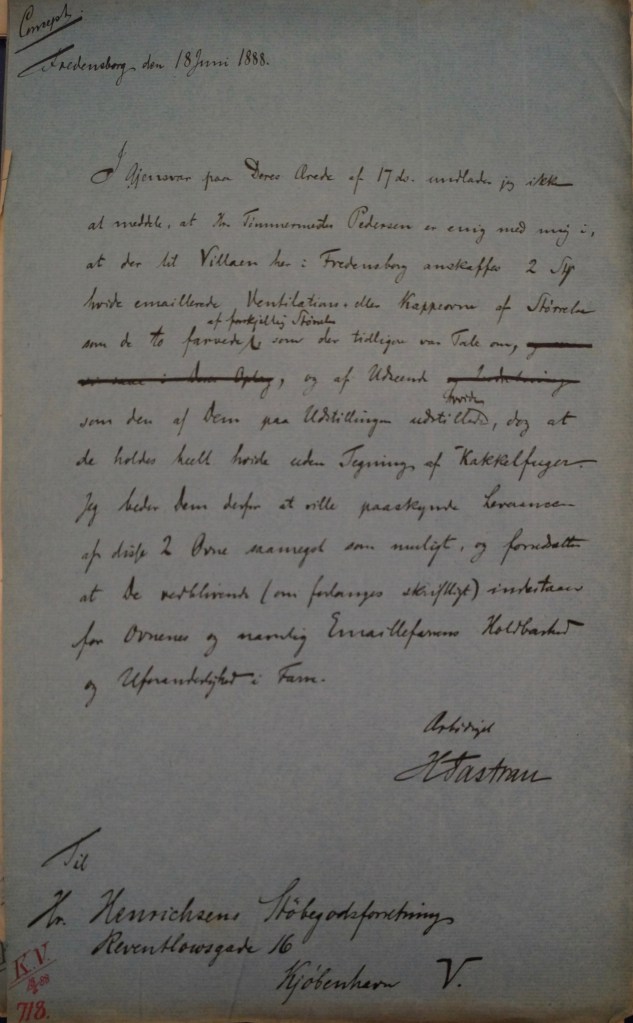 Concept.
Fredensborg den 18 Juni 1888.
I Gjensvar paa Deres Ærede af 17 ds. undlader jeg ikke
at meddele, at Hr Tømmermester Pedersen er enig med mig i,
at der til Villaen her i Fredensborg anskaffes 2 Stk
hvide emaillerede Ventilations- eller Kappeovne af Størrelse
af forskjellig Størrelse
som de to farvede, som der tidligere var Tale om,
i Deres Oplag, og af Udseende og Indretning
hvide
som den af Dem paa Udstillingen udstillede, dog at
de holdes heelt hvide uden Tegning af Kakkelfuger.
Jeg beder Dem derfor at ville paaskynde Leverancen
af disse 2 Ovne saameget som muligt, og forudsætter
at De vedblivende (om forlanges skriftligt) indestaaer
for Ovnenes og navnlig Emaillefarvens Holdbarhed
og Uforanderlighed i Farve.
Ærbødigst
H Tastrau
Til
Hr. Henrichsens Støbegodsforretning
Reventlowsgade 16
Kjøbenhavn V.
K.V.
718.